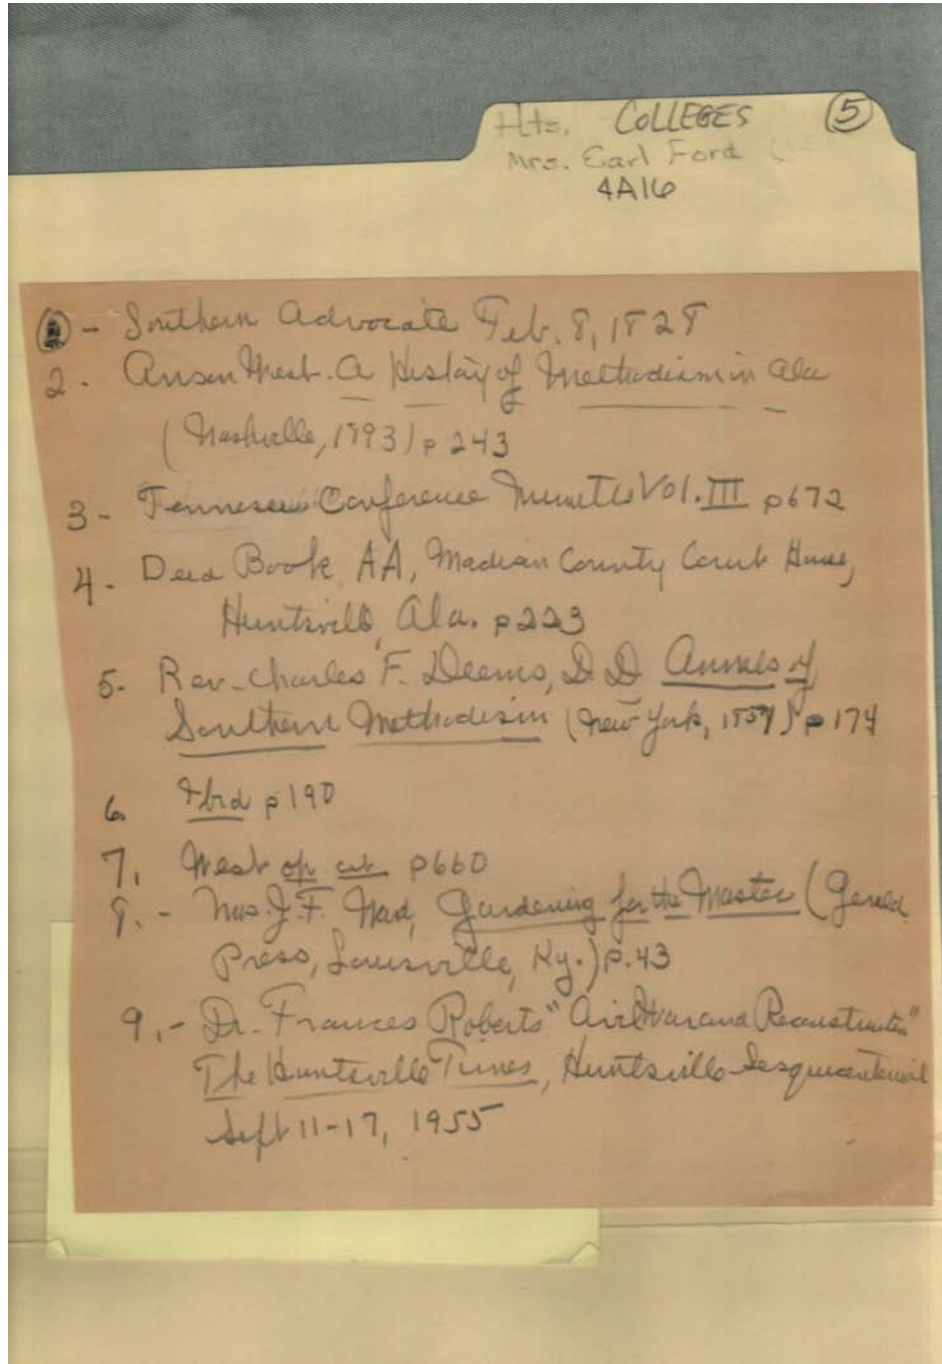 Hts. COLLEGES (5)
Mrs. Earl Ford
4A16
- Southern Advocate Feb. 8, 1828
2. Anson West. A History of Methodism in Ala
(Nashville, 1893) p 243
3 - Tennessee Conference Minutes Vol. III p672
4. Deed Book AA, Madison County Court House,
Huntsville, Ala. p223
5. Rev. Charles F. Deems, D.D Annals of
Southern Methodism (New York, ) p 174
6. Ibid p 190
7. West op cit p660
8. - Mrs. J. F. Gardening for the Master (
Press, Louisville, Ky.) p.43
9. - Dr. Frances Roberts "Civil War and Reconstruction"
The Huntsville Times, Huntsville Sesquicentennial
Sept 11-17, 1955